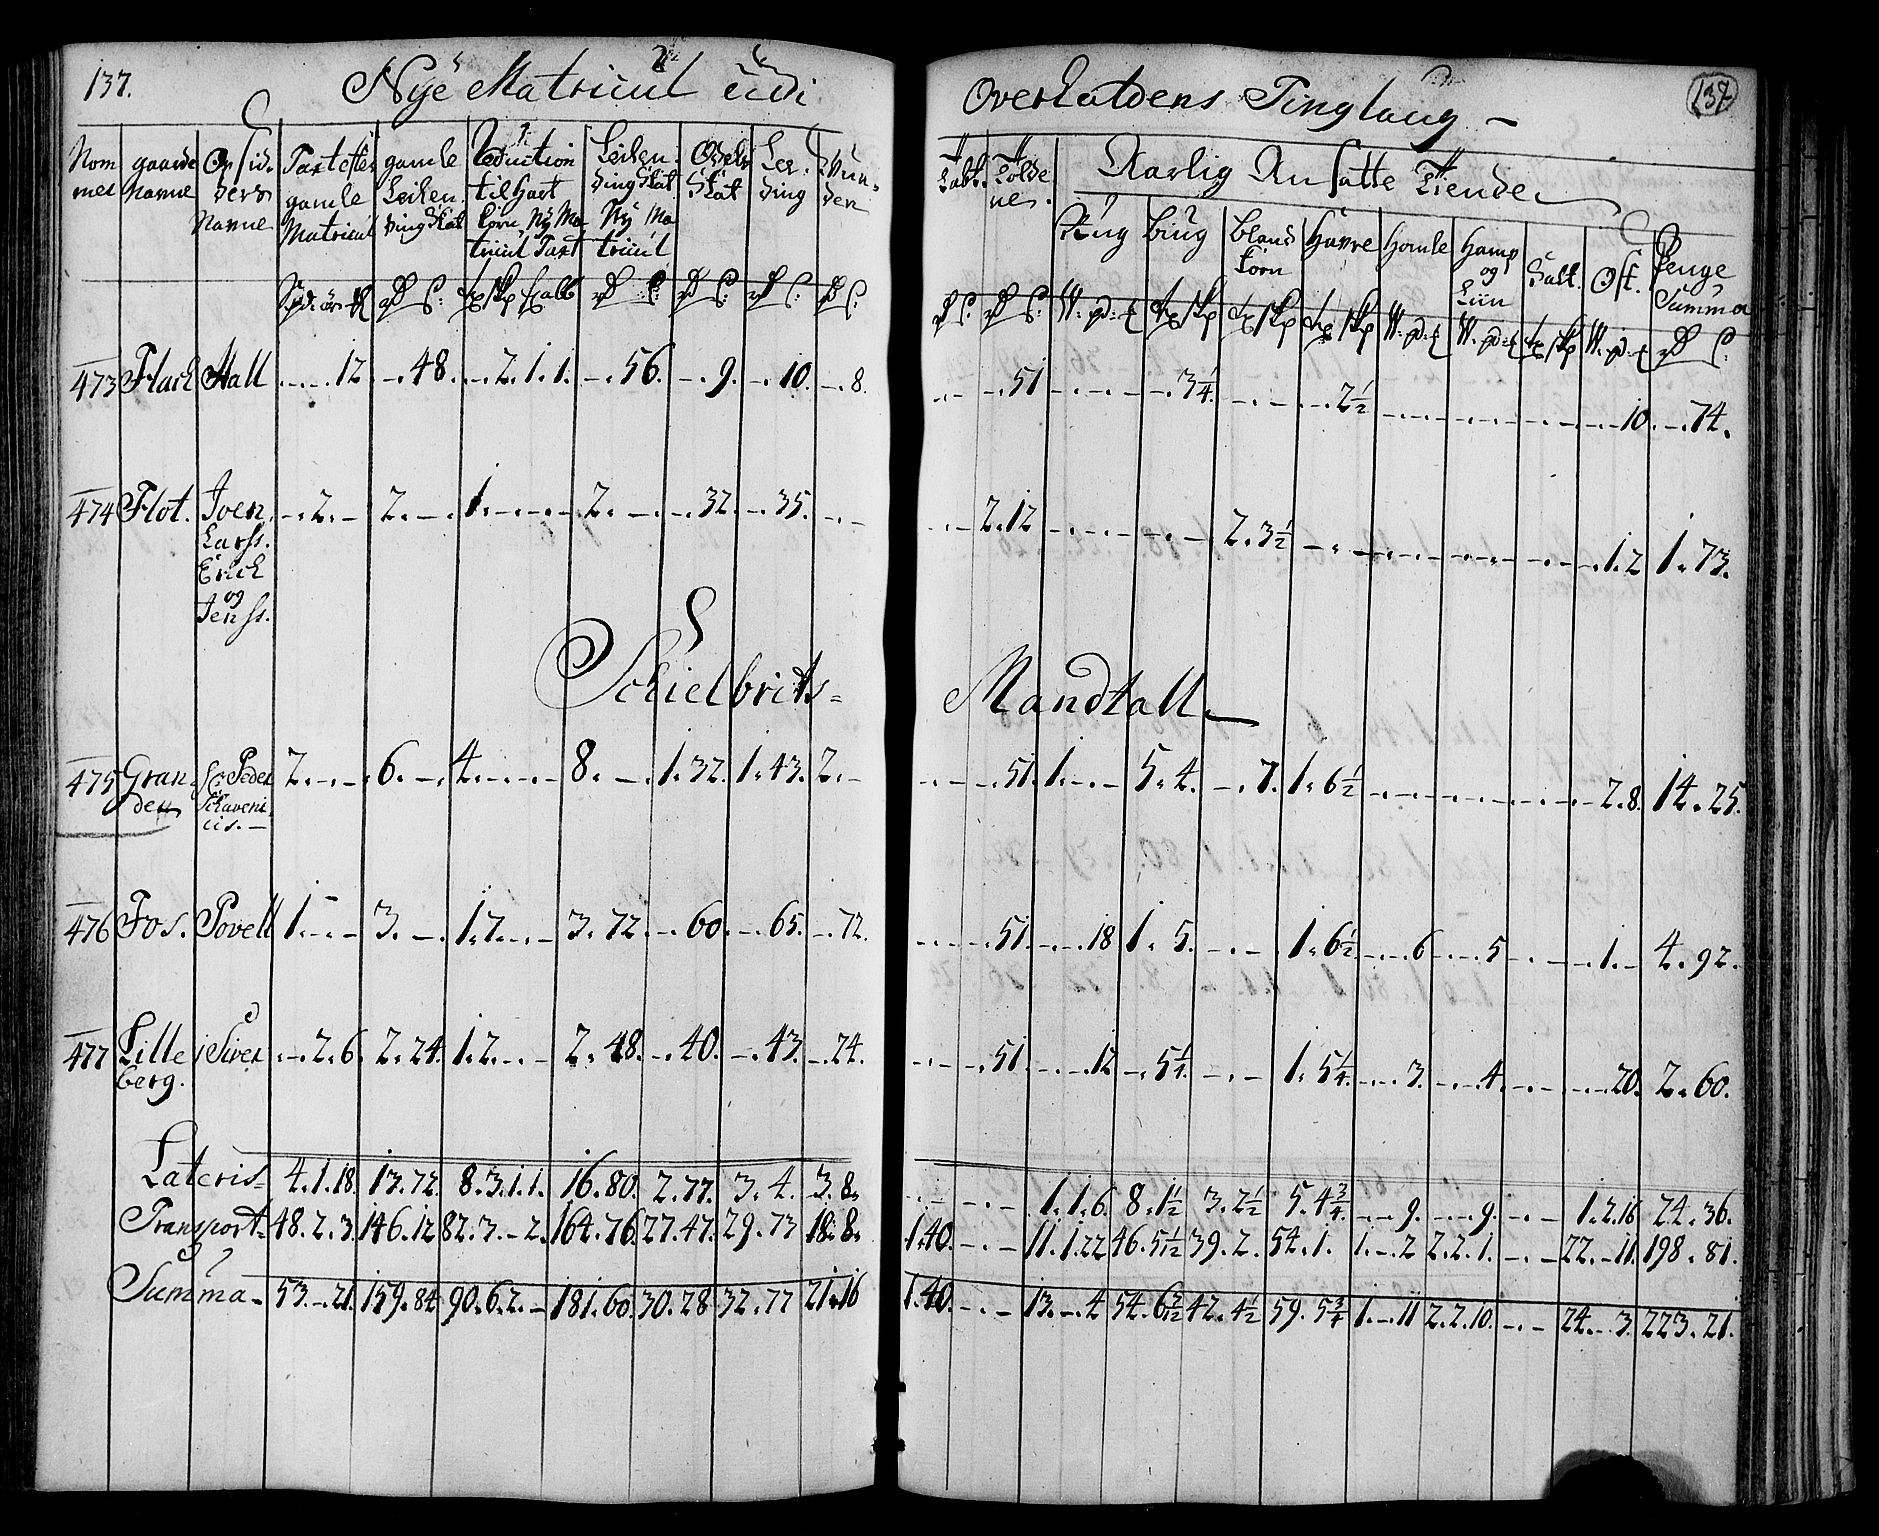 137. Nye Matricul udi Overhaldens Tinglaug - 137
Nom mer | gaarde Navne | Opsid. ders Navne | Taxt efter gamle Matricul | gamle Leilen. ding Skat | Reduction til Hart Korn, Ny Ma= tricul Taxt | Leilen. ding Skat Ny Ma triculs | Odels Skat | Ler: ding | | Aarlig Ansatte Tiende
Rug | biug | bland Korn | Havre | Homle | Hamp og Liin | Salt. | Ost. | Penge Summa
473 Flach Hall ....12 -.48. -.2.1.1. -.56. -.9. -.10. -.8. -.- -.51 -.-.- -.3¼. -.- -.2½ -.-.- -.-.- -.- -.-10. -.74.
474 Flot. Joen -.2.- 2.-. 1.-.-.- 2.-. -.32. -.35. -.- -.- 2.12 -.-.- -.- 2.3½ -.- -.-.- -.-.- -.- -.1.2 1.73.
Larss.
Erich
og
Jenss.
Schielbrits=
Mandtall
475 Gran= Hr: Peder 2.-.- 6.-. 4.-.-.- 8.-. 1.32. 1.43. 2.- -.- -.51. 1.-.- 5.4. -.7. 1.6½ -.-.- -.-.- -.- -.2.8. 14.25.
den Schaveni
us.-
476 Fos. Povell 1.-.- 3.-. 1.7.-.- 3.72. -.60. -.65. -.72. -.- -.51. -.-.18 1.5. -.- 1.6½ -.-.6 -.-.5 -.- -.1.- 4.92.
477 Lille Siver -.2.6. 2.24. 1.2.-.- 2.48. -.40. -.43. -.24. -.- -.51. -.-.12 -.5¼. -.- 1.5¼. -.-.3. -.-.4. -.- -.-.20. 2.60.
berg.
Lateris= 4.1.18. 13.72. 8.3.1.1. 16.80. 2.77. 3.4. 3.8. -.- -.- 1.1.6. 8.1½ 3.2½ 5.4¾ -.-.9. -.-.9. -.- 1.2.16 24.36.
Transport= 48.2.3. 146.12 82.3.-2. 164.76. 27.47. 29.73 18.8. 1.40. -.- 11.1.22 46.5½ 39.2. 54.1. 1.-.2 2.2.1. -.- 22.-.11. 198.81.
Summa - 53.-.21. 159.84 90.6.2.- 181.60. 30.28 32.77 21.16 1.40. -.- 13.-.4 54.6½ 42.4½ 59.5¾ 1.-.11 2.2.10. -.- 24.-.3. 223.21.